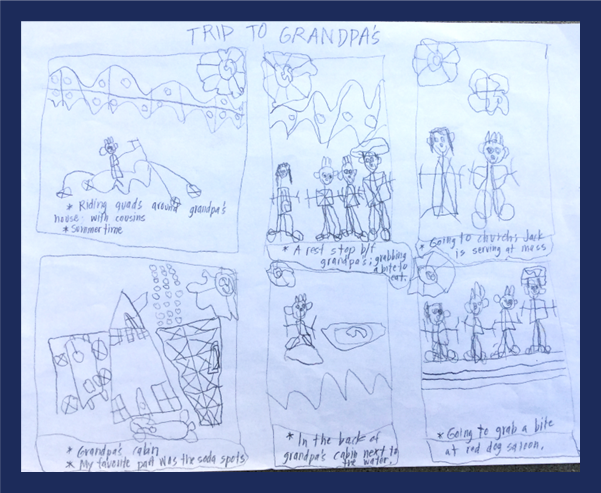 TRIP TO GRANDPA'S
* Riding quads around grandpa's
house with cousins
* Summertime
* A rest stop b/f
grandpa's; grabbing
a bite to
eat.
* Going to church; Jack
is serving at mass
* Grandpa's cabin
* My favorite part was the soda spots
* In the back of
grandpa's cabin next to
the water.
* Going to grab a bite
at red dog saloon.